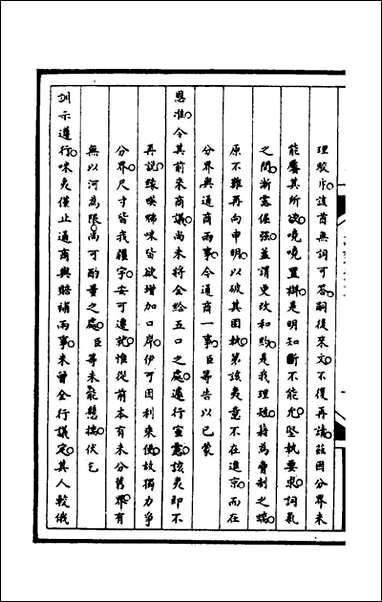 理駁斥該酋無詞可答嗣後來文不復再請茲因分界未
能饜其所欲嘵嘵置辯是明知斷不能允堅執要求詞氣
之間漸露倔强並謂更改和約是我理短藉為脅制之端
原不難再向申明以破其固執第該夷意不在進京而在
分界與通商兩事今通商一事臣等告以已蒙
恩准令其前來商議尚未將全給五口之處遽行宣露該夷即不
再說緣㗎㘔咪皆欲增加口岸伊可因利乘便故獨力爭
分界尺寸皆我疆宇安可遷就惟從前本有未分舊界有
無以河為限尚可酌量之處臣等未能懸揣伏乞
訓示遵行咪夷僅止通商與賠補兩事未曾全行議定其人較俄